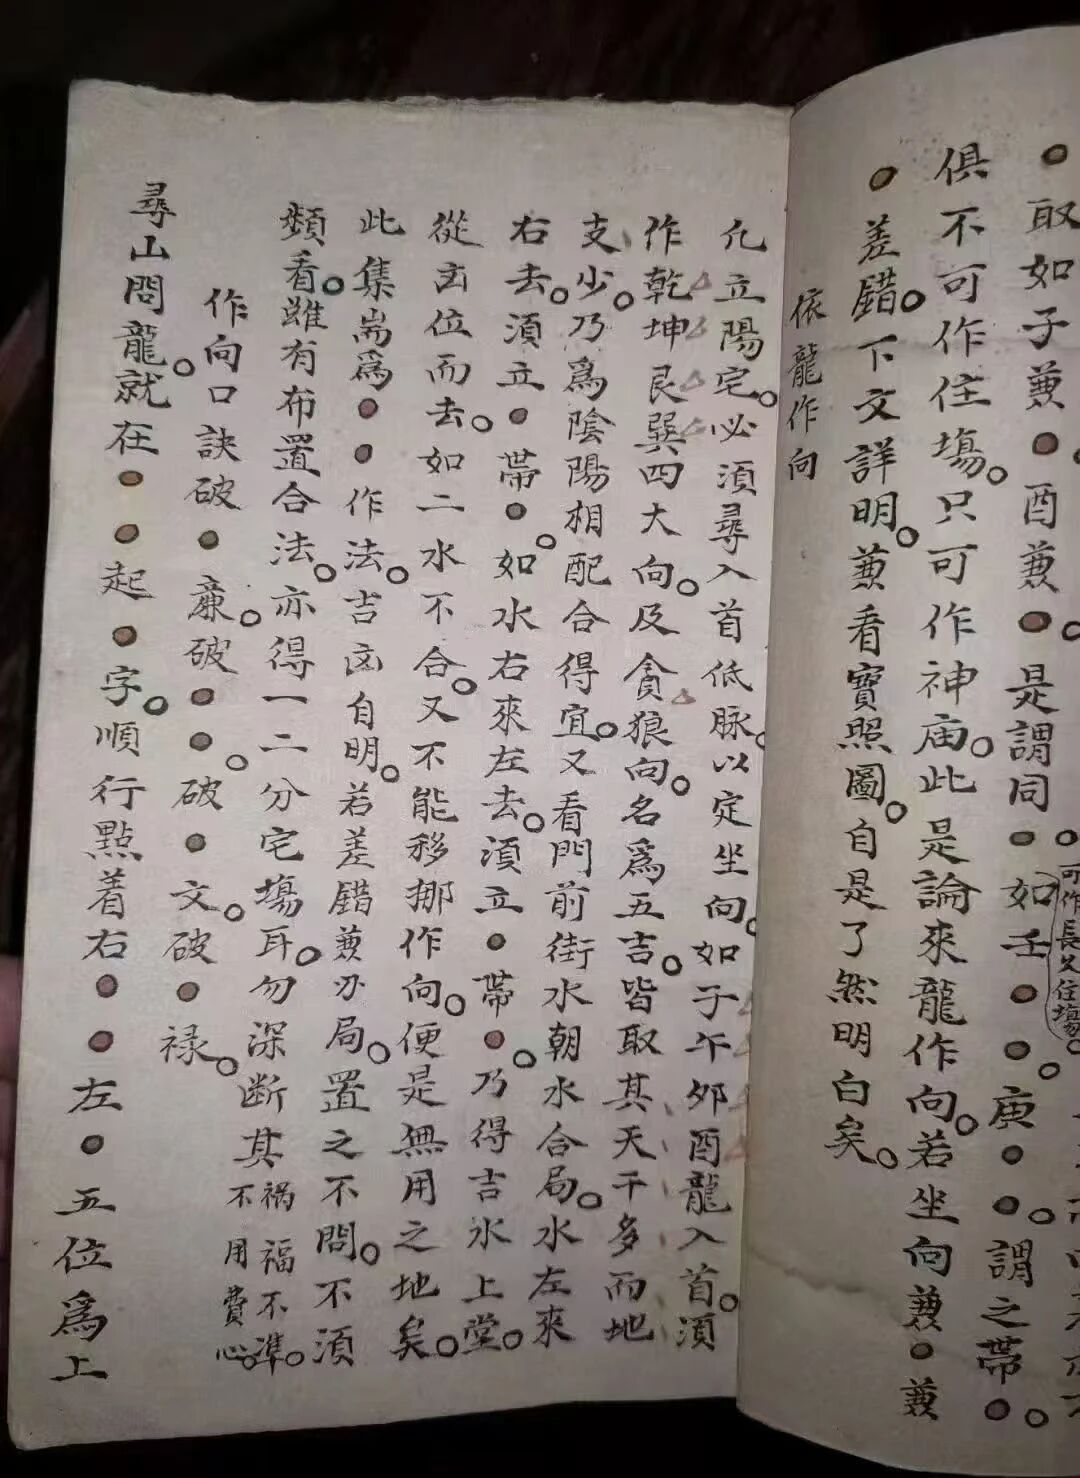 ●取如子兼●酉兼●。是謂同●如壬●●。庚●●。謂之帶●。
可作長久住塲。
俱不可作住塲。只可作神庙。此是論來龍作向。若坐向兼●兼
●差錯。下文詳明。兼看寶照圖。自是了然明白矣。
依龍作向
凡立陽宅。必須尋入首低脉。以定坐向。如子午夘酉龍入首。須
作乾坤艮巽四大向。及貪狼向。名爲五吉。皆取其天干多而地
支少。乃爲陰陽相配合得宜。又看門前街水朝水合局。水左來
右去。須立●帶●。如水右來左去。須立●帶●。乃得吉水上堂。
從凶位而去。如二水不合。又不能移挪作向。便是無用之地矣。
此集耑爲●●作法。吉凶自明。若差錯兼办局。置之不問。不須
類看。雖有布置合法。亦得一二分宅塲耳。勿深断其禍福不準。不用費心。
作向口訣破●廉。破●●。破●文。破●禄。
尋山問龍。就在●●起●字。順行點着右●●左●五位爲上